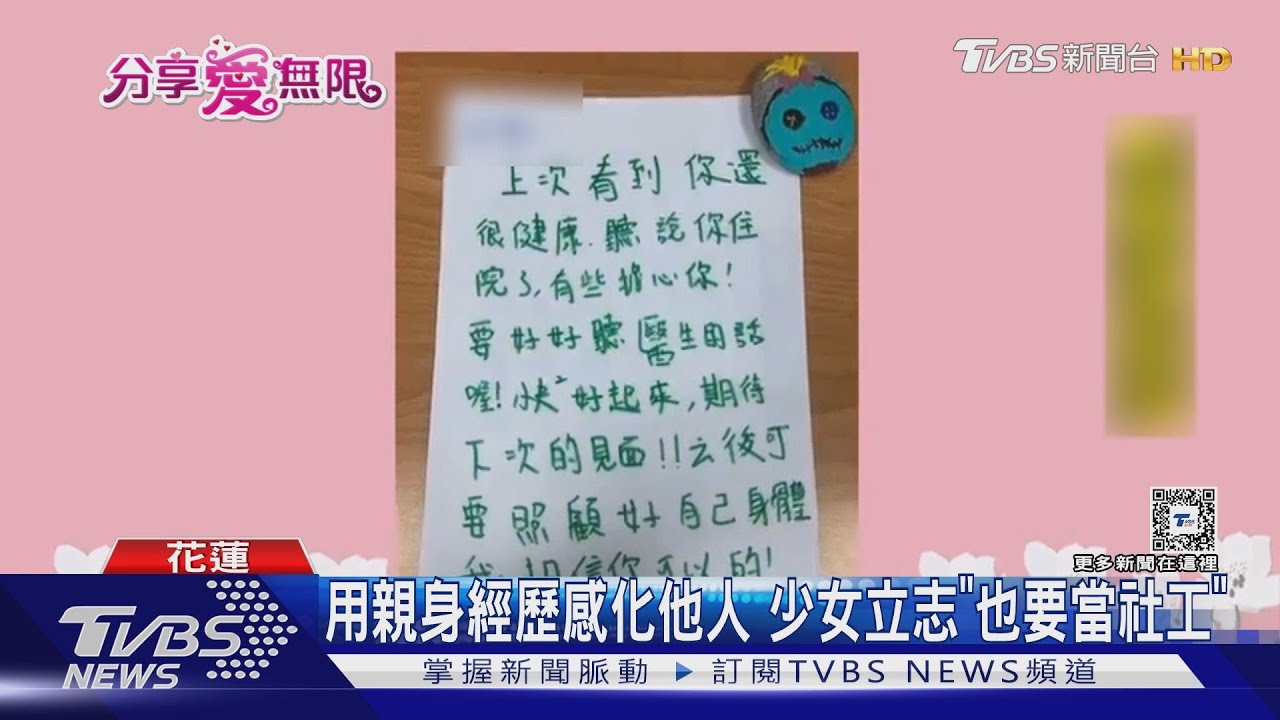 分享愛無限
TVBS新聞台 HD
上次看到你還
很健康.聽說你住
院了,有些擔心你!
要好好聽醫生的話
喔!快²好起來,期待
下次的見面!!之後可
要照顧好自己身體
我相信你可以的!
更多新聞在這裡
花蓮
用親身經歷感化他人 少女立志"也要當社工"
TVBS NEWS
掌握新聞脈動 ▶ 訂閱TVBS NEWS頻道